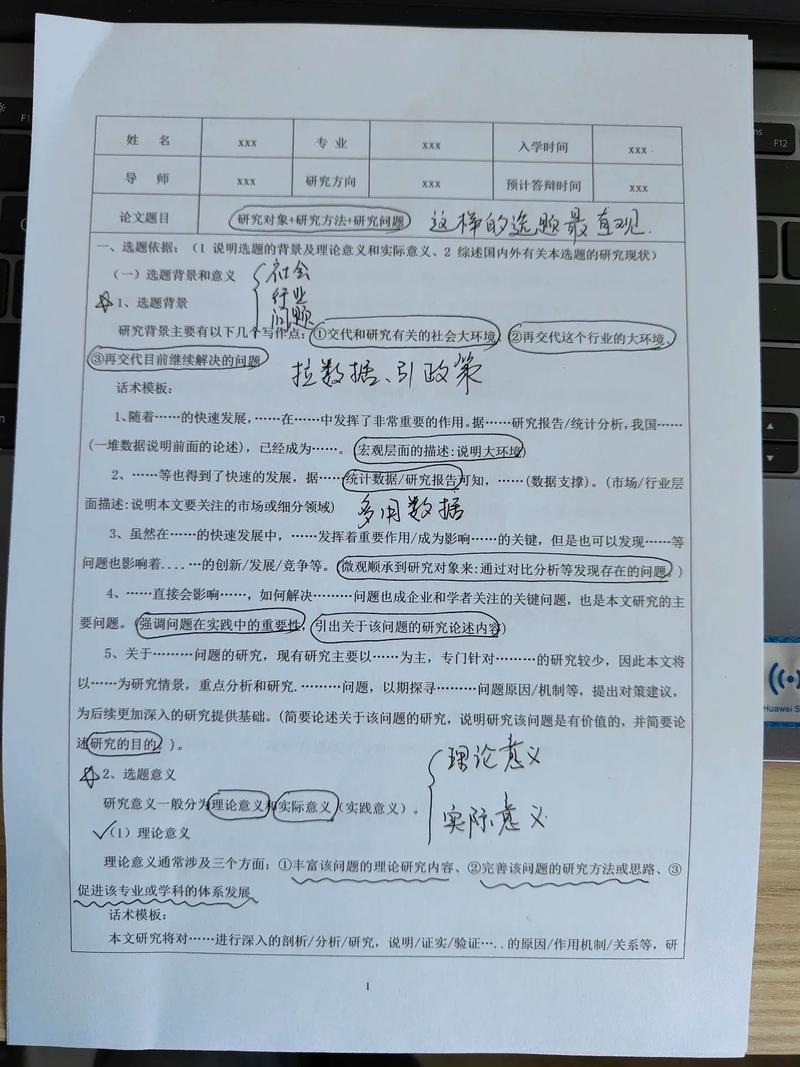 姓 名 xxx 专 业 xxx 入学时间 xxx
导 师 xxx 研究方向 xxx 预计答辩时间 xxx
论文题目 研究对象+研究方法+研究问题 这样的选题最直观.
一、选题依据:(1 说明选题的背景及理论意义和实际意义、2 综述国内外有关本选题的研究现状)
(一)选题背景和意义 社会
1、选题背景 行业
问题
研究背景主要有以下几个写作点:①交代和研究有关的社会大环境、②再交代这个行业的大环境、
③再交代目前继续解决的问题
拉数据、引政策
话术模板:
1、随着……的快速发展,……在……中发挥了非常重要的作用。据……研究报告/统计分析,我国……
(一堆数据说明前面的论述),已经成为……。(宏观层面的描述:说明大环境)
2、……等也得到了快速的发展,据……统计数据/研究报告可知,……(数据支撑)。(市场/行业层
面描述:说明本文要关注的市场或细分领域) 多用数据
3、虽然在……的快速发展中,……发挥着重要作用/成为影响……的关键,但是也可以发现……等
问题也影响着....…的创新/发展/竞争等。(微观顺承到研究对象来:通过对比分析等发现存在的问题。)
4、……直接会影响……,如何解决………问题也成企业和学者关注的关键问题,也是本文研究的主
要问题。(强调问题在实践中的重要性,引出关于该问题的研究论述内容)
5、关于………问题的研究,现有研究主要以……为主,专门针对………的研究较少,因此本文将
以……为研究情景,重点分析和研究.………问题,以期探寻………问题原因/机制等,提出对策建议,
为后续更加深入的研究提供基础。(简要论述关于该问题的研究,说明研究该问题是有价值的,并简要论
述研究的目的。)。
2、选题意义 理论意义
研究意义一般分为理论意义和实际意义(实践意义)。 实际意义
(1)理论意义
理论意义通常涉及三个方面;①丰富该问题的理论研究内容、②完善该问题的研究方法或思路、③
促进该专业或学科的体系发展
话术模板:
本文研究将对……进行深入的剖析/分析/研究,说明/证实/验证…..的原因/作用机制/关系等,研
1
F1
F12
Huawei S